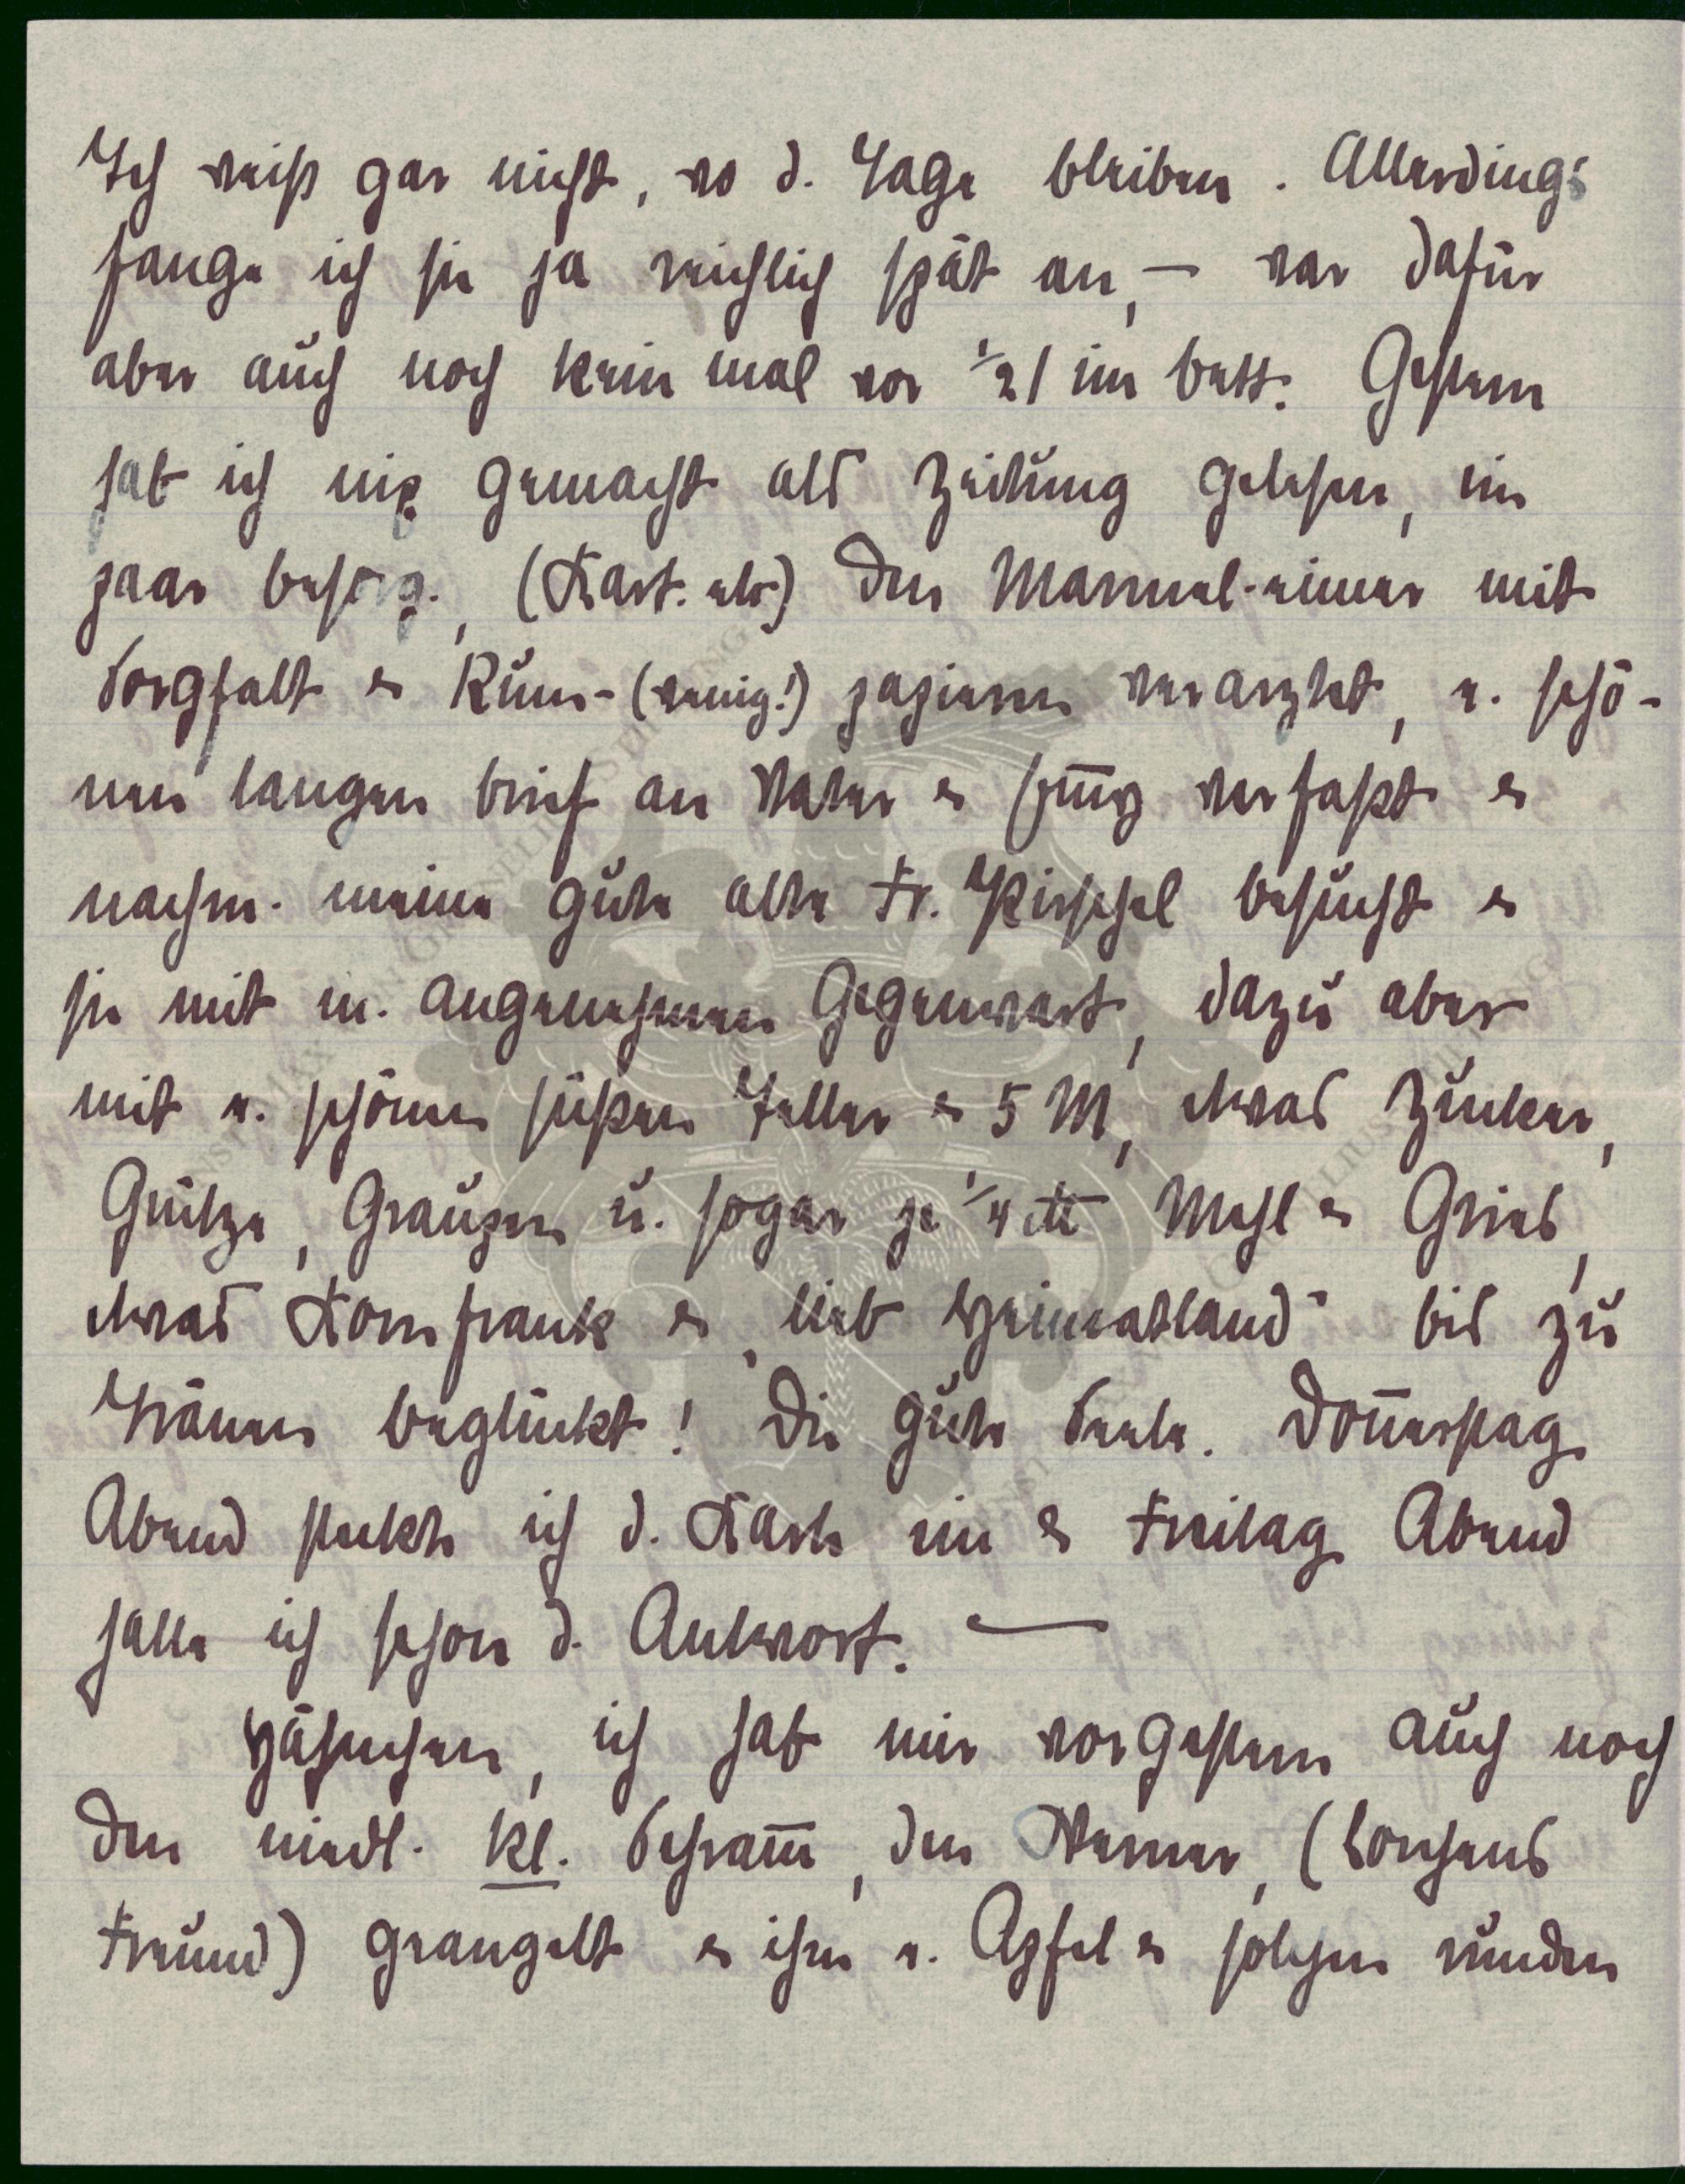 Ich weiß gar nicht, wo d. Tage bleiben. Allerdings
fange ich sie ja reichlich spät an, — war dafür
aber auch noch kein mal vor ½1 im bett. Gestern
hab ich nix gemacht als Zeitung gelesen, ein
paar besorg., (Kart. etc) den Marmel-eimer mit
Sorgfalt & Rüm-(wenig!) papieren verarztet, e. schö-
nen langen brief an Vater & verfaßt &
nachm. meine gute alte Fr. Kirschel besucht &
sie mit m. angenehmen Gegenwart, dazu aber
mit e. schönen süßen Teller & 5 M, etwas Zucker,
Grütze, Graupen u. sogar je ¼ ℔ Mehl & Gries,
etwas Kornfrank & „lieb Heimatland" bis zu
Tränen beglückt! Die gute Seele. Don̄erstag
Abend steckte ich d. Karte ein & Freitag Abend
hatte ich schon d. Antwort. —
Häschen, ich hab mir vorgestern auch noch
den niedl. kl. Schram̄, den Werner, (Lorchens
Freund) geangelt & ihm e. Apfel & solchen runden